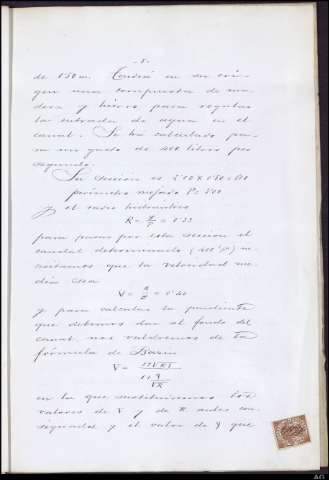 - 5 -
de 150 m. Tendrá en su ori-
gen una compuerta de ma-
dera y hierro para regular
la entrada de agua en el
canal. Se ha calculado pa-
ra un gasto de 400 litros por
segundo.
Su sección es
perímetro mojado P =
y el radio hidráulico
R = = 0'33
para pasar por esta sección el
caudal determinado (400 l) ne-
cesitamos que la velocidad me-
dia sea
V = = 0'40
y para calcular la pendiente
que debemos dar al fondo del
canal, nos valdremos de la
fórmula de Bazin
V =
en la que sustituiremos los
valores de V y de R antes con-
signados y el valor de γ que